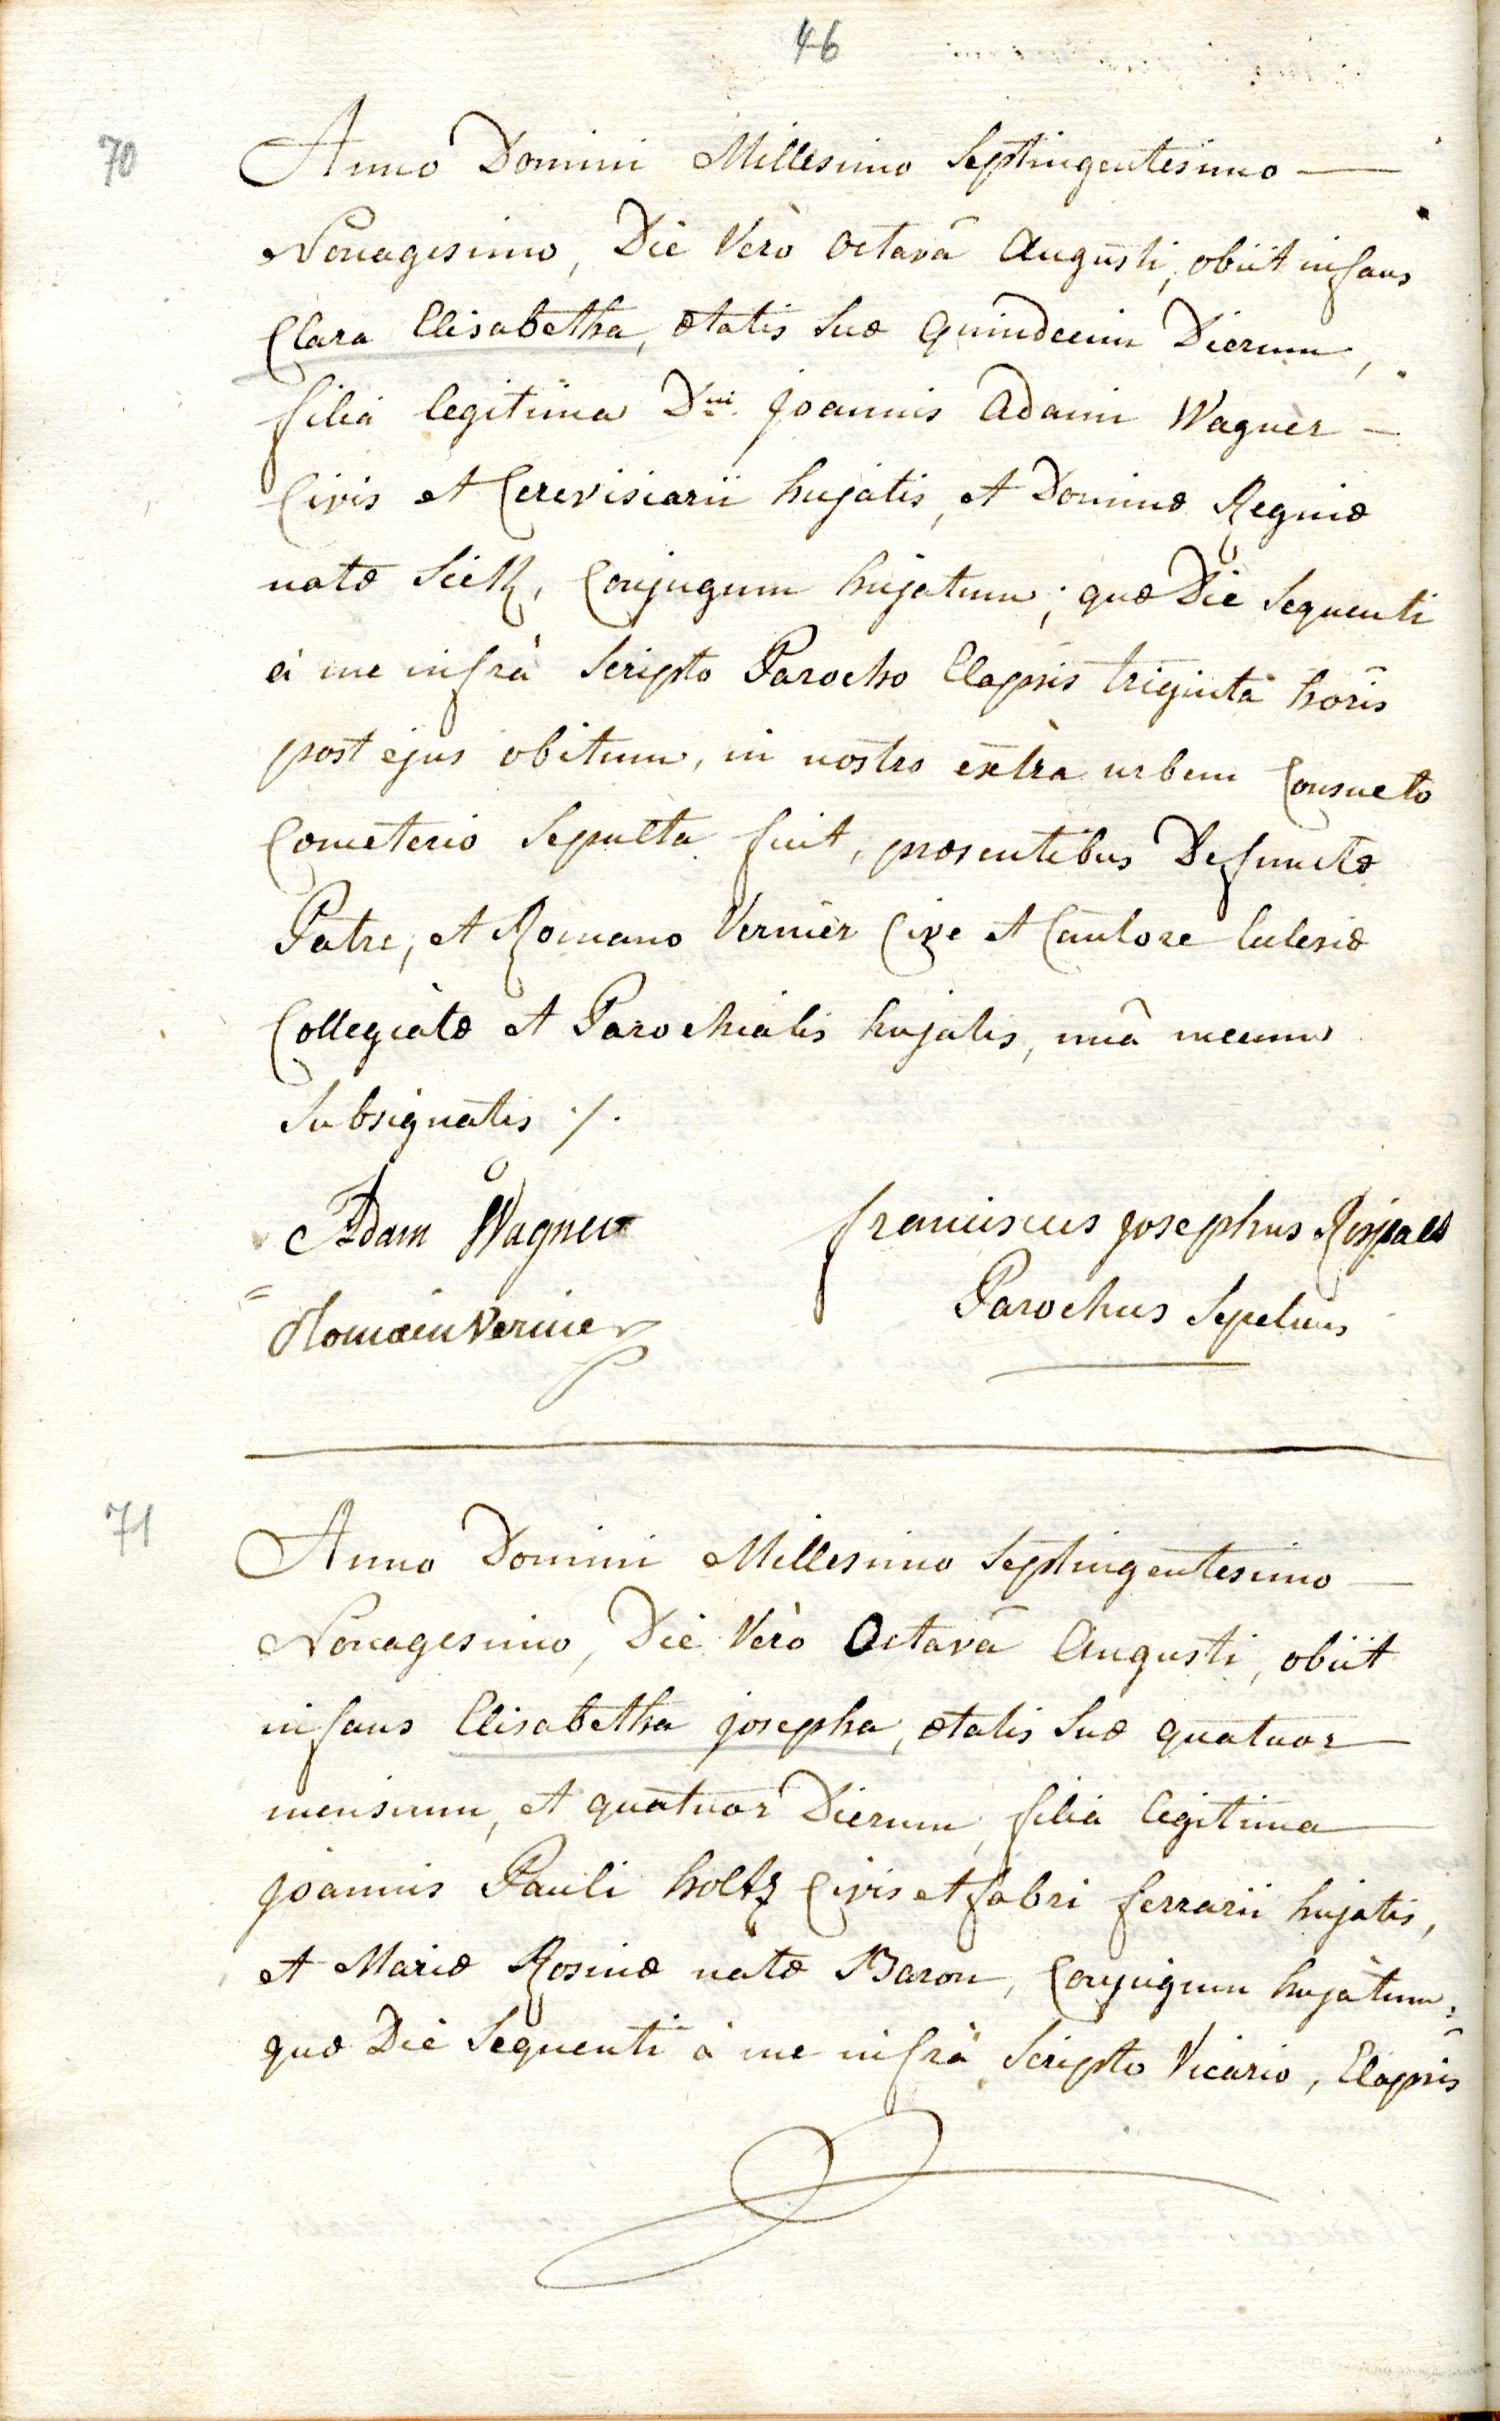 46
70
Anno Domini Millesimo Septingentesimo —
Nonagesimo, Die Verò octavâ Augusti, obiit infans
Clara Elisabetha, ætatis suæ quindecim Dierum,
filia legitima Dni Joannis Adami Wagner —
Civis et Cerevisiarii hujatis, et Dominæ Reginæ
natæ, Conjugum hujatum; quæ Die sequenti
à me infrà scripto Parocho Elapsis triginta horis
post ejus obitum, in nostro extra urbem Consueto
Cœmeterio sepulta fuit, præsentibus Defunctæ
Patre, et Romano Vernier Cive et Cantore Ecclesiæ
Collegiatæ et Parochialis hujatis, unâ mecum
subsignatis ./.
Adam Wagner
Franciscus Josephus
Romain Vernier
Parochus Sepeliens
71
Anno Domini Millesimo Septingentesimo —
Nonagesimo, Die Verò Octavâ Augusti, obiit
infans Elisabetha Josepha, ætatis suæ quatuor —
mensium, et quatuor Dierum, filia legitima —
Joannis Pauli Holtz Civis et fabri ferrarii hujatis,
et Mariæ Rosinæ natæ Baron, Conjugum hujatum;
quæ Die sequenti à me infrà scripto Vicario, Elapsis